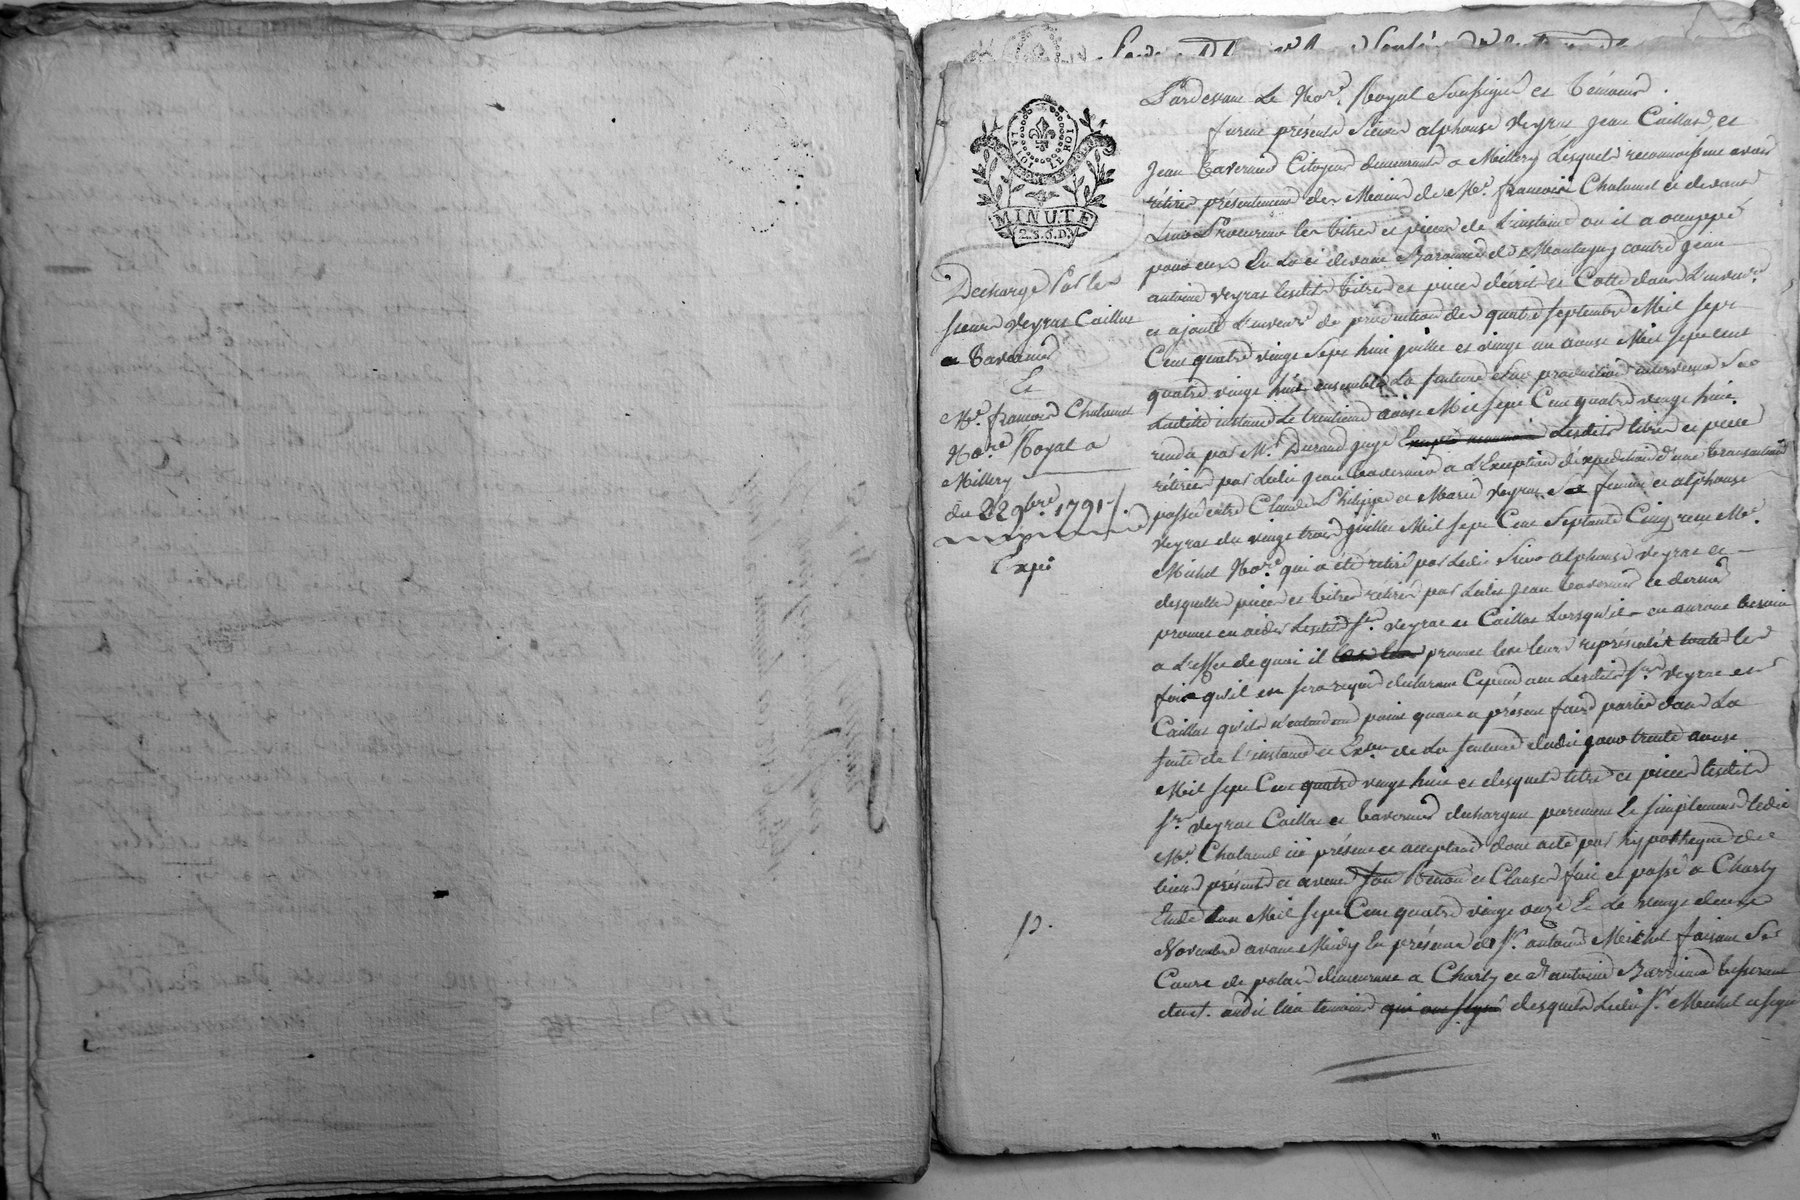 LA LOI LE ROI
MINUTE
2.S.6.D.
Décharge par les
sieurs Veyras Caillas
et Tavernier
Et
Me. françois Chalamel
No.re Royal a
Millery
du 22 9bre. 1791
Expé
Pardevant Le No.re Royal Soussigné et témoins.
furent présents Sieurs alphonse Veyras Jean Caillas et
Jean Tavernier Citoyens demeurants a Millery Lesquels reconnoissent avoir
rétiré présentement des Mains de Me. françois Chalamel ci devant
Leur Procureur les titres et pieces de L'instance ou il a occuppé
pour eux En La ci devant Baronnie de Montagny contre Jean
antoine Veyras lesdits titres et pieces décrits et Cotté dans L'inventre.
et ajouté L'inventre. de production des quatre septembre Mil sept
Cent quatre vingt Sept huit juillet et vingt un aoust Mil sept cent
quatre vingt huit, ensemble La sentence de production intervenue Sur
Ladite instance Le trentieme aoust Mil sept Cent quatre vingt huit
rendu par Mr. Durand juge Lesdits titres et pieces
rétirés par Ledit Jean Tavernier a L'Exception d'expédition d'une transaction
passée entre Claude Philippe et Marie Veyras Sa femme et alphonse
Veyras du vingt trois juillet Mil sept Cent Septante Cinq reçu Me.
Michel No.re qui a été rétiré par Ledit Sieur alphonse Veyras et
desquelles pieces et titres rétirés par Ledit Jean Tavernier ce dernier
promet en aider Lesdits Srs. Veyras et Caillas Lorsqu'ils en auront besoin
a L'effet de quoi il promet les leurs représenter toutes les
fois qu'il en sera réquis déclarant Cependant Lesdits Srs. Veyras et
Caillas qu'ils n'entendent point quant a présent faire parties dans La
suite de L'instance et Exon. de La sentence dudit jour trente aoust
Mil sept Cent quatre vingt huit et desquels titres et pieces Lesdits
Srs. Veyras Caillas et Tavernier déchargent purement Et simplement ledit
Me. Chalamel ici présent et acceptant dont acte par hypothéque de
biens présents et avenir Sou Renon. et Clauses fait et passé a Charly
Etude L'an Mil sept Cent quatre vingt onze Et Le vingt deux
Novembre avant Midy En présence de Sr. antoine Michel faisant Sa
Cour de palais demeurant a Charly et d'antoine Barrieux tisserant
demt. audit lieu temoins qui ont signé desquels Ledit Sr. Michel a signé